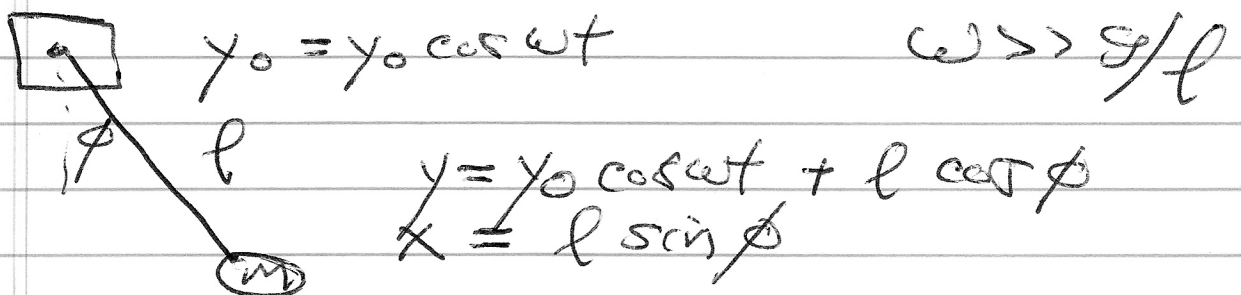 y₀ = y₀ cos ωt ω >> g/l
φ l y = y₀ cos ωt + l cos φ
x = l sin φ
m